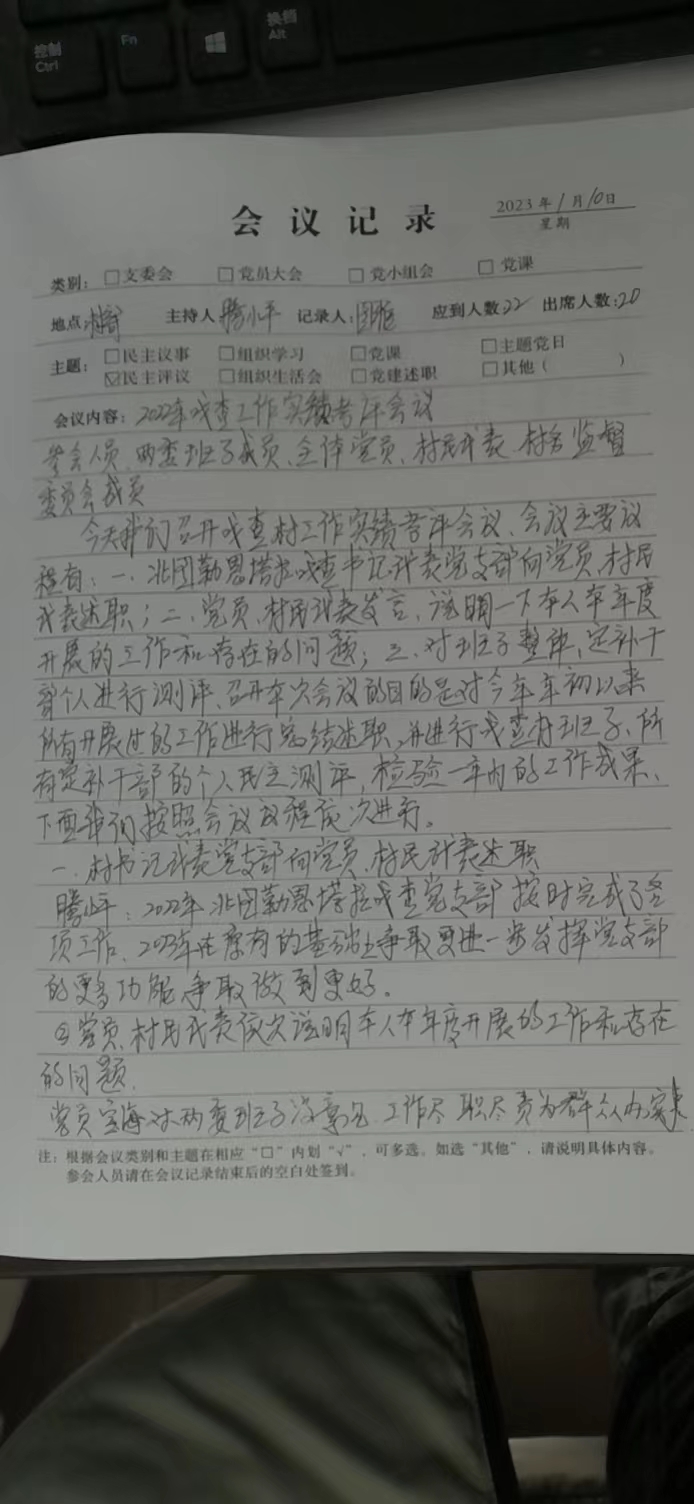 控制
Ctrl
Fn
换档
Alt
会议记录
2023年1月10日
星期
类别：□支委会 □党员大会 □党小组会 □党课
地点： 主持人 腾小平 记录人： 应到人数：22 出席人数：20
主题：□民主议事 □组织学习 □党课 □主题党日
☑民主评议 □组织生活会 □党建述职 □其他（ ）
会议内容：2022年戎查工作实绩考评会议
参会人员、两委班子成员、全体党员、村民代表、村务监督
委员会成员
今天我们召开戎查村工作实绩考评会议、会议主要议
程有：一、北图勒恩塔拉戎查书记代表党支部向党员、村民
代表述职；二、党员、村民代表发言、说明一下本人本年度
开展的工作和存在的问题；三、对班子整体、定补干
部个人进行测评、召开本次会议的目的是对今年年初以来
所有开展过的工作进行总结述职、并进行戎查村班子、所
有定补干部的个人民主测评，检验一年内的工作成果、
下面我们按照会议议程依次进行。
一、村书记代表党支部向党员、村民代表述职
腾小平：2022年北图勒恩塔拉戎查党支部按时完成了各
项工作、2023年在原有的基础上争取更进一步发挥党支部
的更多功能争取做到更好。
②党员、村民代表依次说明本人本年度开展的工作和存在
的问题.
党员 海对两委班子没意见、工作尽职尽责为群众办实事
注：根据会议类别和主题在相应“□”内划“√”，可多选。如选“其他”，请说明具体内容。
参会人员请在会议记录结束后的空白处签到。